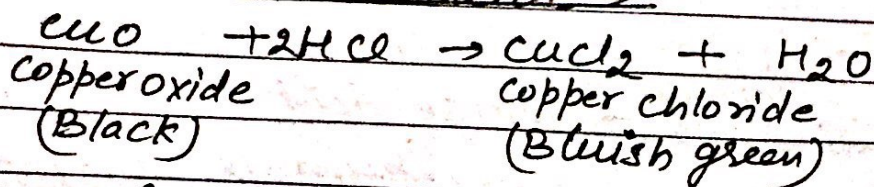 CuO + 2HCl → CuCl₂ + H₂O
Copper oxide Copper chloride
(Black) (Bluish green)